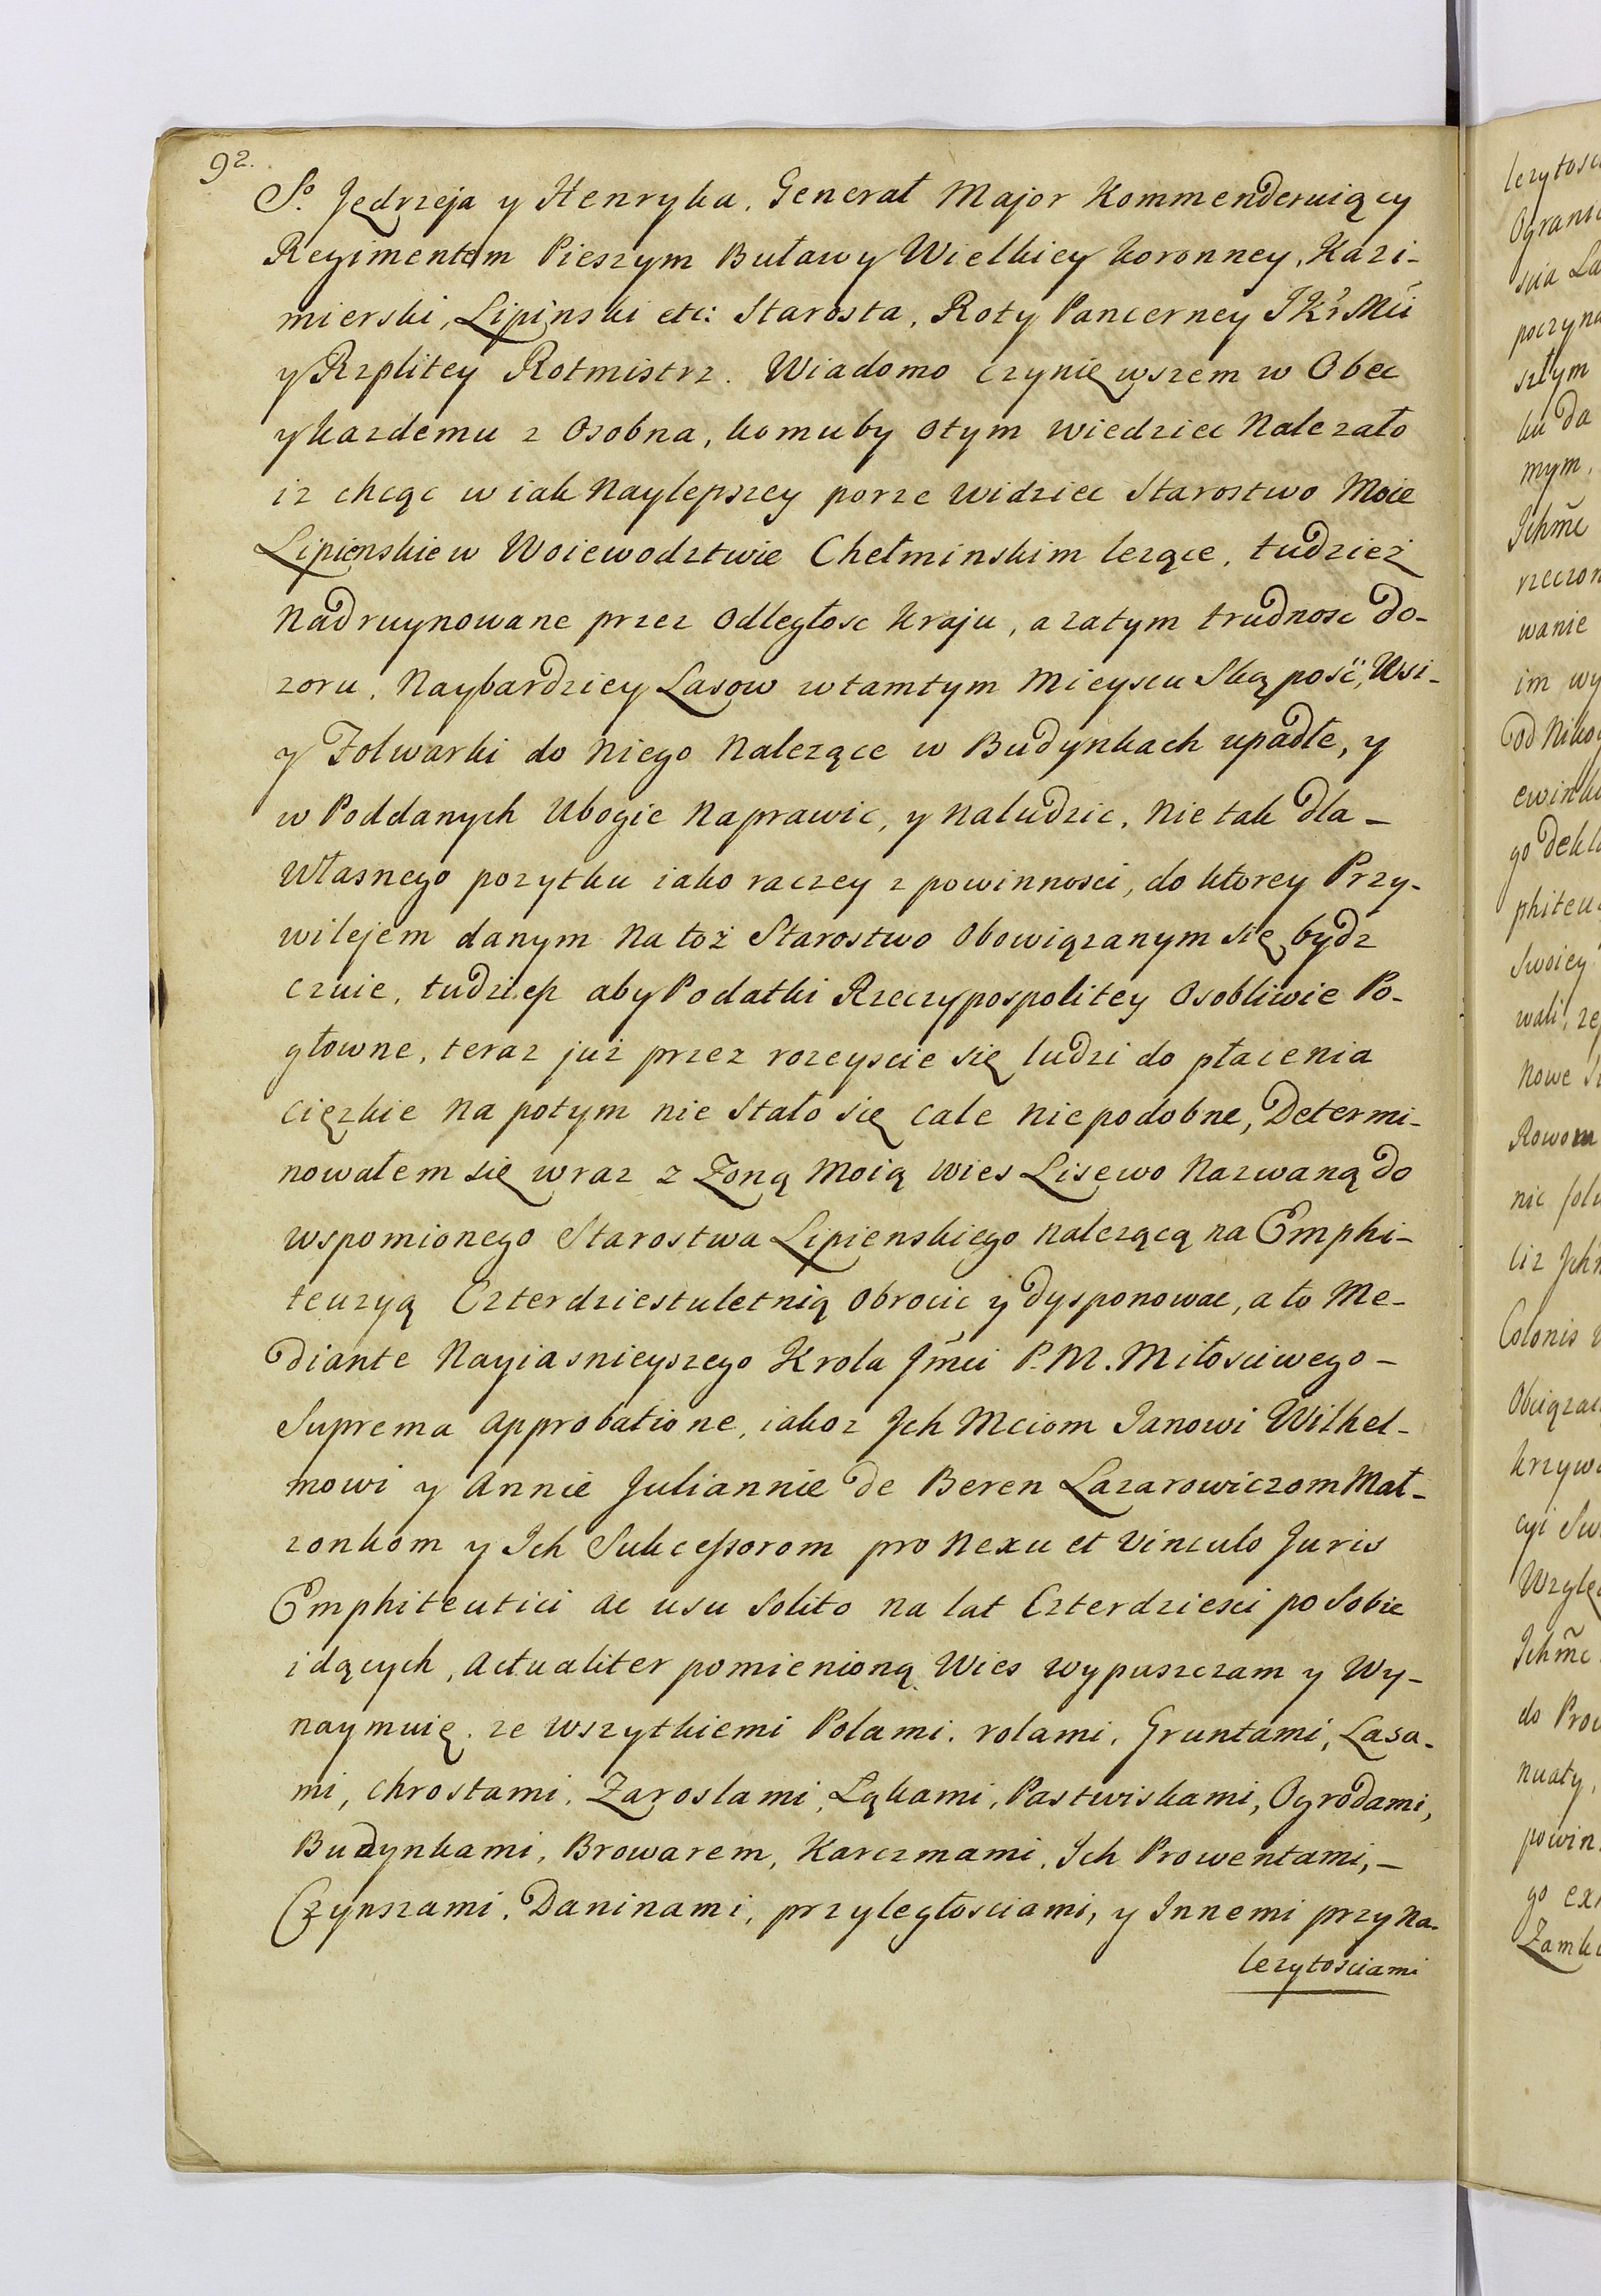 92.
S.º Jędrzeja y Henryka, Generał Major Kommenderuiący
Regimentem Pieszym Buławy Wielkiey Koronney, Kazi-
mierski, Lipinski etc: Starosta, Roty Pancerney J Kr Mci
y Rzplitey Rotmistrz. Wiadomo czynię wszem w Obec
y kazdemu z Osobna, komuby Otym wiedziec Nalezało
iz chcąc w iak Naylepszey porze widziec Starostwo Moie
Lipienskie w Woiewodztwie Chełminskim lezące, tudzież
Nadruynowane przez Odległosc Kraju, a zatym trudnosc Do-
zoru, Naybardziey Lasow w tamtym Mieyscu Skąposć, Wsi-
y Folwarki do Niego Nalezące w Budynkach upadłe, y
w Poddanych Ubogie Naprawic, y Naludzic, Nie tak Dla-
Własnego pozytku iako raczey z powinnosci, do ktorey Przy-
wilejem danym Na toż Starostwo Obowiązanym się bydz
czuie, tudziesz aby Podatki Rzeczypospolitey Osobliwie Po-
głowne, teraz już przez rozeyscie się ludzi do płacenia
cięzkie Na potym nie Stało się cale Niepodobne, Determi-
nowałem się wraz z Zoną Moią Wies Lisewo Nazwaną do
wspomionego Starostwa Lipienskiego Nalezącą na Emphi-
teuzyą Czterdziestuletnią Obrocic y dysponowac, a to Me-
diante Nayiasnieyszego Krola Jmci P. M. Miłosciwego-
Suprema Approbatione, iakoz Jch Mciom Janowi Wilhel-
mowi y Annie Juliannie de Beren Lazarowiczom Mał-
zonkom y Ich Sukcessorom pro Nexu et Vinculo Juris
Emphiteutici ac usu Solito Na lat Czterdziesci po Sobie
idących, Actualiter pomienioną Wies wypuszczam y Wy-
naymuię. ze Wszytkiemi Polami, rolami, Gruntami, Lasa-
mi, Chrostami, Zaroslami, Łąkami, Pastwiskami, Ogrodami,
Budynkami, Browarem, Karczmami, Ich Prowentami,-
Czynszami, Daninami, przyległosciami, y Innemi przyna-
lezytosciami
lezytosc
Ogranic
scia La
poczyna
szłym
ku da
mym,
Jchmc
rzeczon
wanie
im wy
Od Niko
ewinko
go Dekl
phiteu
Swoiey
wali, ze
Nowe
Rowow
nic
liz Jch
Colonis
Obciąza
krzyw
cyi Sw
Wzglę
Jchmc
do Prow
nuaty,
powin
go ex
Zamk